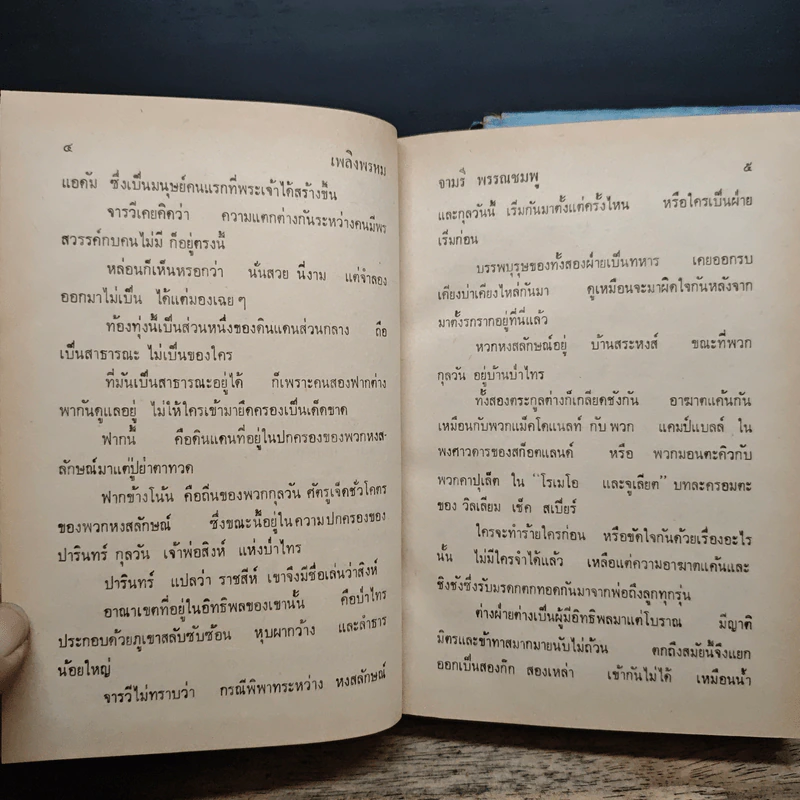 ๔
เพลิงพรหม
แอดัม ซึ่งเป็นมนุษย์คนแรกที่พระเจ้าได้สร้างขึ้น
จารวีเคยคิดว่า ความแตกต่างกันระหว่างคนมีพร
สวรรค์กบคนไม่มี ก็อยู่ตรงนี้
หล่อนก็เห็นหรอกว่า นั่นสวย นี่งาม แต่จำลอง
ออกมาไม่เป็น ได้แต่มองเฉย ๆ
ท้องทุ่งนี้เป็นส่วนหนึ่งของดินแดนส่วนกลาง ถือ
เป็นสาธารณะ ไม่เป็นของใคร
ที่มันเป็นสาธารณะอยู่ได้ ก็เพราะคนสองฟากต่าง
พากันดูแลอยู่ ไม่ให้ใครเข้ามายึดครองเป็นเด็ดขาด
ฟากนี้ คือดินแดนที่อยู่ในปกครองของพวกหงส-
ลักษณ์มาแต่ปู่ย่าตาทวด
ฟากข้างโน้น คือถิ่นของพวกกุลวัน ศัตรูเจ็ดชั่วโคตร
ของพวกหงสลักษณ์ ซึ่งขณะนี้อยู่ในความปกครองของ
ปารินทร์ กุลวัน เจ้าพ่อสิงห์ แห่งป่าไทร
ปารินทร์ แปลว่า ราชสีห์ เขาจึงมีชื่อเล่นว่าสิงห์
อาณาเขตที่อยู่ในอิทธิพลของเขานั้น คือป่าไทร
ประกอบด้วยภูเขาสลับซับซ้อน หุบผากว้าง และลำธาร
น้อยใหญ่
จารวีไม่ทราบว่า กรณีพิพาทระหว่าง หงสลักษณ์
จามรี พรรณชมพู
๕
และกุลวันนี้ เริ่มกันมาตั้งแต่ครั้งไหน หรือใครเป็นฝ่าย
เริ่มก่อน
บรรพบุรุษของทั้งสองฝ่ายเป็นทหาร เคยออกรบ
เคียงบ่าเคียงไหล่กันมา ดูเหมือนจะมาผิดใจกันหลังจาก
มาตั้งรกรากอยู่ที่นี่แล้ว
พวกหงสลักษณ์อยู่ บ้านสระหงส์ ขณะที่พวก
กุลวัน อยู่บ้านป่าไทร
ทั้งสองตระกูลต่างก็เกลียดชังกัน อาฆาตแค้นกัน
เหมือนกับพวกแม็คโดแนลท์ กับ พวก แคมป์แบลล์ ใน
พงศาวดารของสก็อตแลนด์ หรือ พวกมอนตะคิวกับ
พวกคาปุเล็ต ใน "โรเมโอ และจูเลียต" บทละครอมตะ
ของ วิลเลียม เช็ค สเปียร์
ใครจะทำร้ายใครก่อน หรือขัดใจกันด้วยเรื่องอะไร
นั้น ไม่มีใครจำได้แล้ว เหลือแต่ความอาฆาตแค้นและ
ชิงชังซึ่งรับมรดกตกทอดกันมาจากพ่อถึงลูกทุกรุ่น
ต่างฝ่ายต่างเป็นผู้มีอิทธิพลมาแต่โบราณ มีญาติ
มิตรและข้าทาสมากมายนับไม่ถ้วน ตกถึงสมัยนี้จึงแยก
ออกเป็นสองกิก สองเหล่า เข้ากันไม่ได้ เหมือนน้ำ